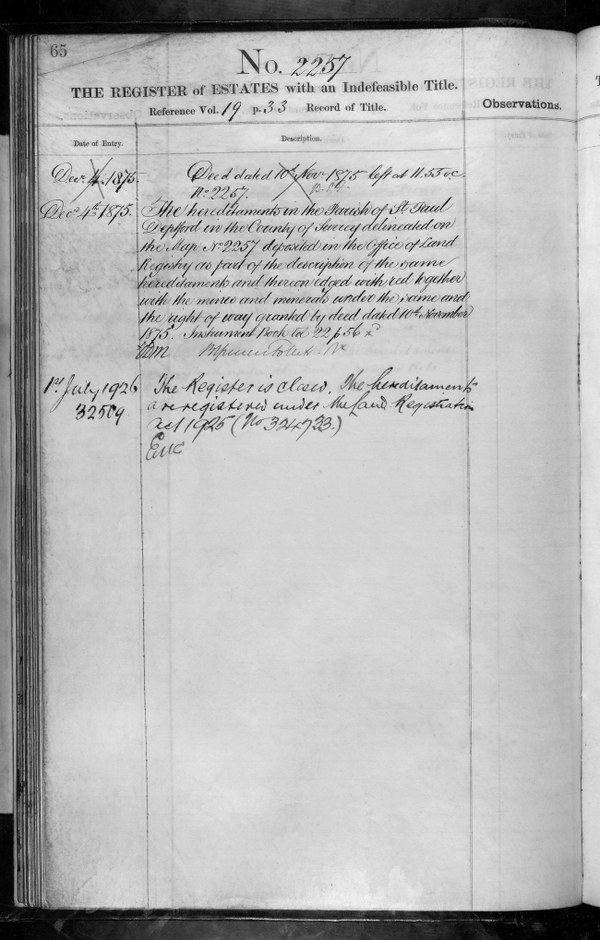 65
No. 2257
THE REGISTER of ESTATES with an Indefeasible Title.
Reference Vol. 19 p. 33 Record of Title.
Observations.
Date of Entry.
Description.
Decr. 4. 1875.
Deed dated 10th Novr 1875 left at 11.55 o.c.
No 2257.
Decr 4th 1875.
The hereditaments in the Parish of St. Paul
Deptford in the County of Surrey delineated on
the Map No 2257 deposited in the Office of Land
Registry as part of the description of the same
hereditaments and thereon edged with red together
with the mines and minerals under the same and
the right of way granted by deed dated 10th November
1875. Instrument Book vol 22 p 56
1st July 1926
32509
The Register is closed. The hereditaments
are registered under the Land Registration
Act 1925 (No 324733.)